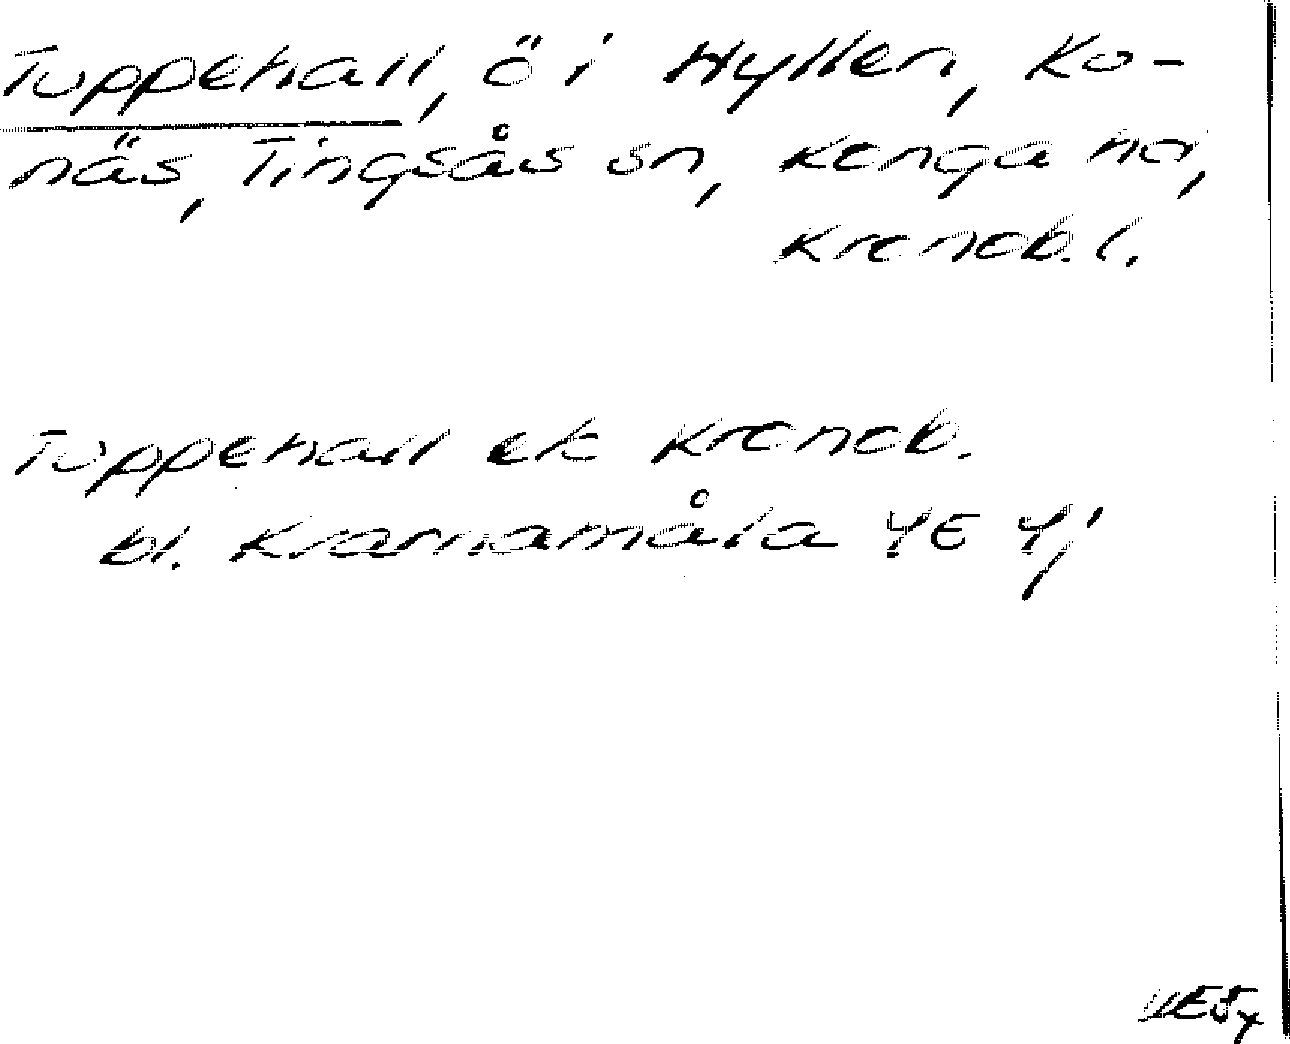 Tuppehall, ö i Hyllen, Ko-
näs, Tingsås sn, Konga hd,
Kronob. l.
Tuppehall ek Kronob.
bl. Kvarnamåla 4E 4j